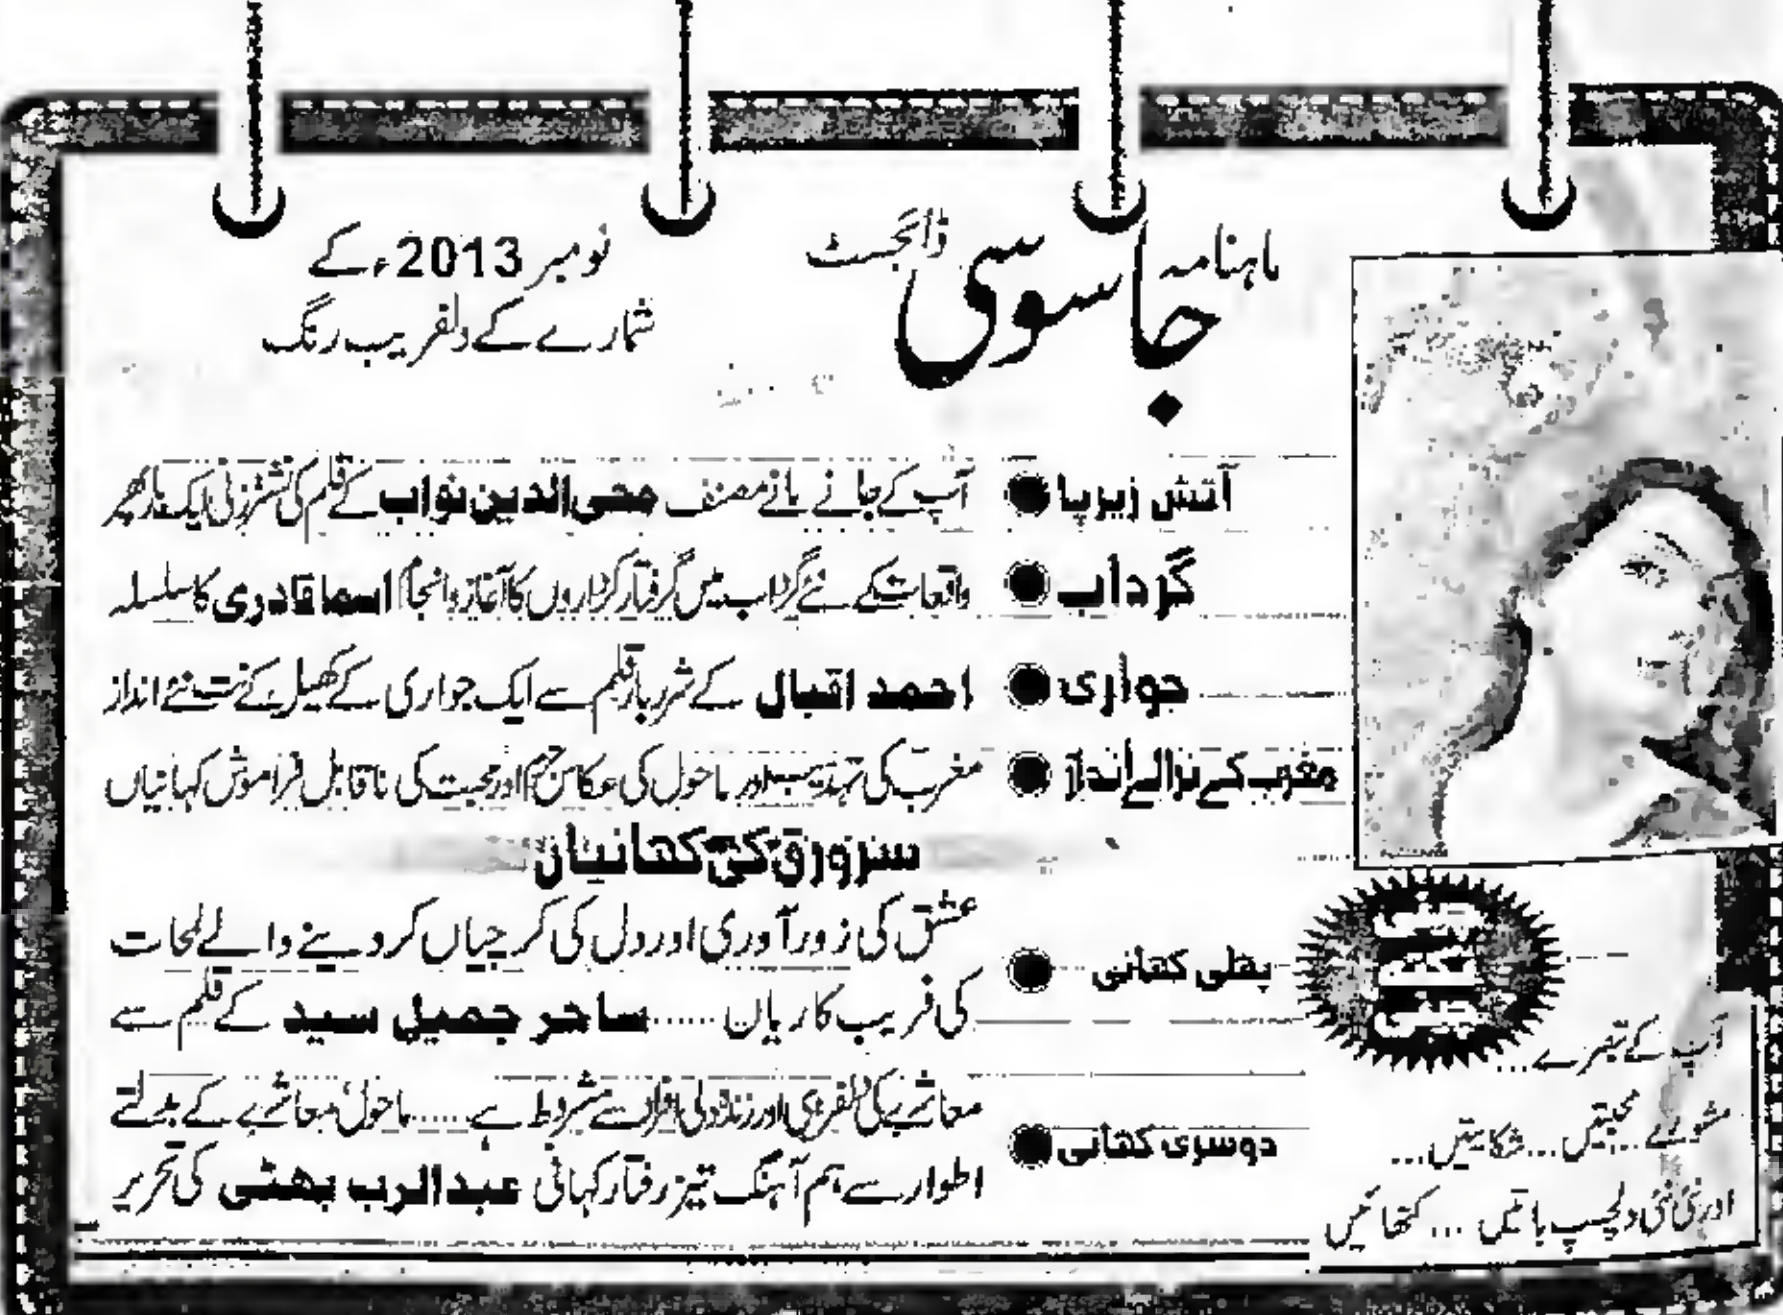 ماہنامہ جاسوسی ڈائجسٹ
نومبر 2013ء کے
شمارے کے دلفریب رنگ
آتش زیرپا ● آپ کے جانے مانے مصنف محی الدین نواب کے قلم کی نشتر زنی ایک بار پھر
گرداب ● واقعات کے نئے گرداب میں گرفتار کرداروں کا آغاز و انجام اسما قادری کا سلسلہ
جواری ● احمد اقبال کے شرر بار قلم سے ایک جواری کے کھیل کے نت نئے انداز
مغرب کے نرالے انداز ● مغرب کی تہذیب اور ماحول کی عکاس جرم اور محبت کی ناقابل فراموش کہانیاں
سرورق کی کہانیاں
پہلی کہانی ● عشق کی زور آوری اور دل کی کرچیاں کر دینے والے لمحات
کی فریب کاریاں ...... ساحر جمیل سید کے قلم سے
دوسری کہانی ● معاشرے کی دلفریبی اور زندہ دلی افراد سے مشروط ہے ..... ماحول، معاشرے کے بدلتے
اطوار سے ہم آہنگ تیز رفتار کہانی عبدالرب بھٹی کی تحریر
چینی
نکتہ
چینی
آپ کے تبصرے...
مشورے... محبتیں... شکایتیں...
اور نئی نئی دلچسپ باتیں ... کتھائیں